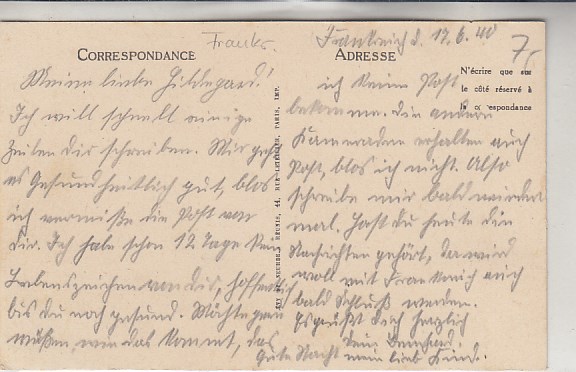 Frankr.
Frankreich d. 17.6.40
7,-
CORRESPONDANCE
ADRESSE
N'écrire que sur
le côté réservé à
la correspondance
Meine liebe Hildegard!
Ich will schnell einige
Zeilen dir schreiben. Mir geht
es Gesundheitlich gut, blos
ich vermiße die Post von
Dir. Ich habe schon 12 Tage kein
Lebenszeichen von dir, hoffentlich
bis du noch gesund. Möchte gern
wißen, wen das kommt, das
ich keine Post
bekomme. Die andern
Kameraden erhalten auch
Post, blos ich nicht. Also
schreibe mir bald wieder
mal. Hast du heute die
Nachrichten gehört, da wird
woll mit Frankreich auch
bald Schluß werden.
Es grüßt dich herzlich
dein Bernhard.
Gute Nacht mein lieb Kind.
44, RUE LETELLIER, PARIS, IMP.